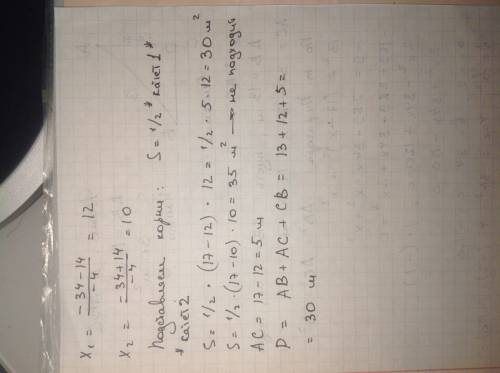 x₁ = (-34-14)/-4 = 12
x₂ = (-34+14)/-4 = 10
Подставляем корни: S = 1/2 * катет 1 *
* катет 2
S = 1/2 · (17-12) · 12 = 1/2 · 5 · 12 = 30 м²
S = 1/2 · (17-10) · 10 = 35 м² — не подходит
AC = 17-12 = 5 м
P = AB + AC + CB = 13 + 12 + 5 =
= 30 м